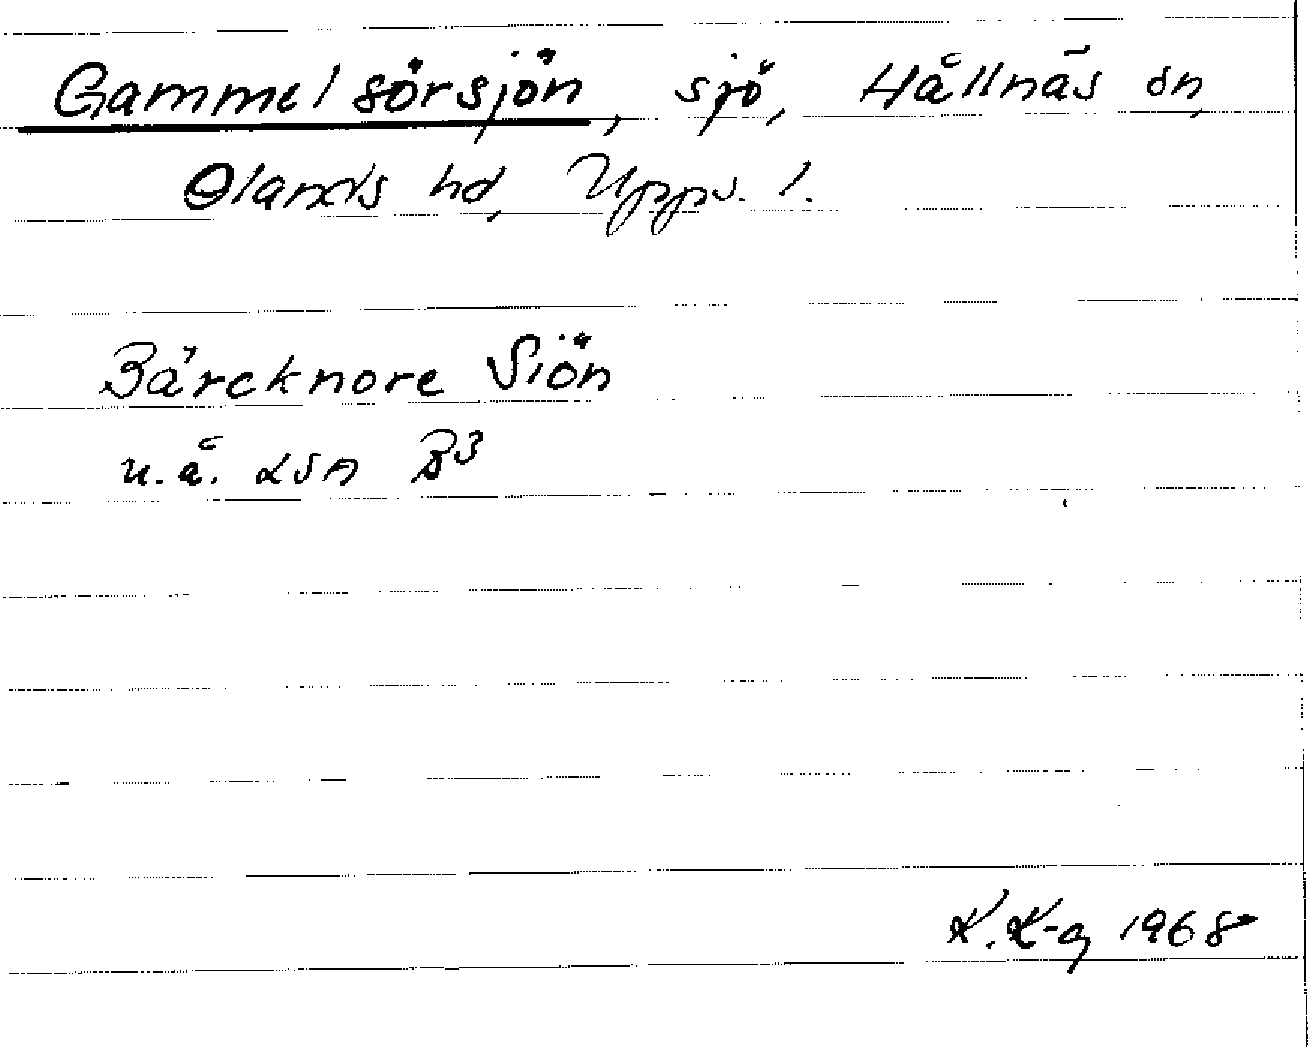 Gammelsörsjön, sjö, Hållnäs sn,
Olands hd, Upps. l.
Bärcknore Siön
u.å. LSA B3
K. K-g 1968